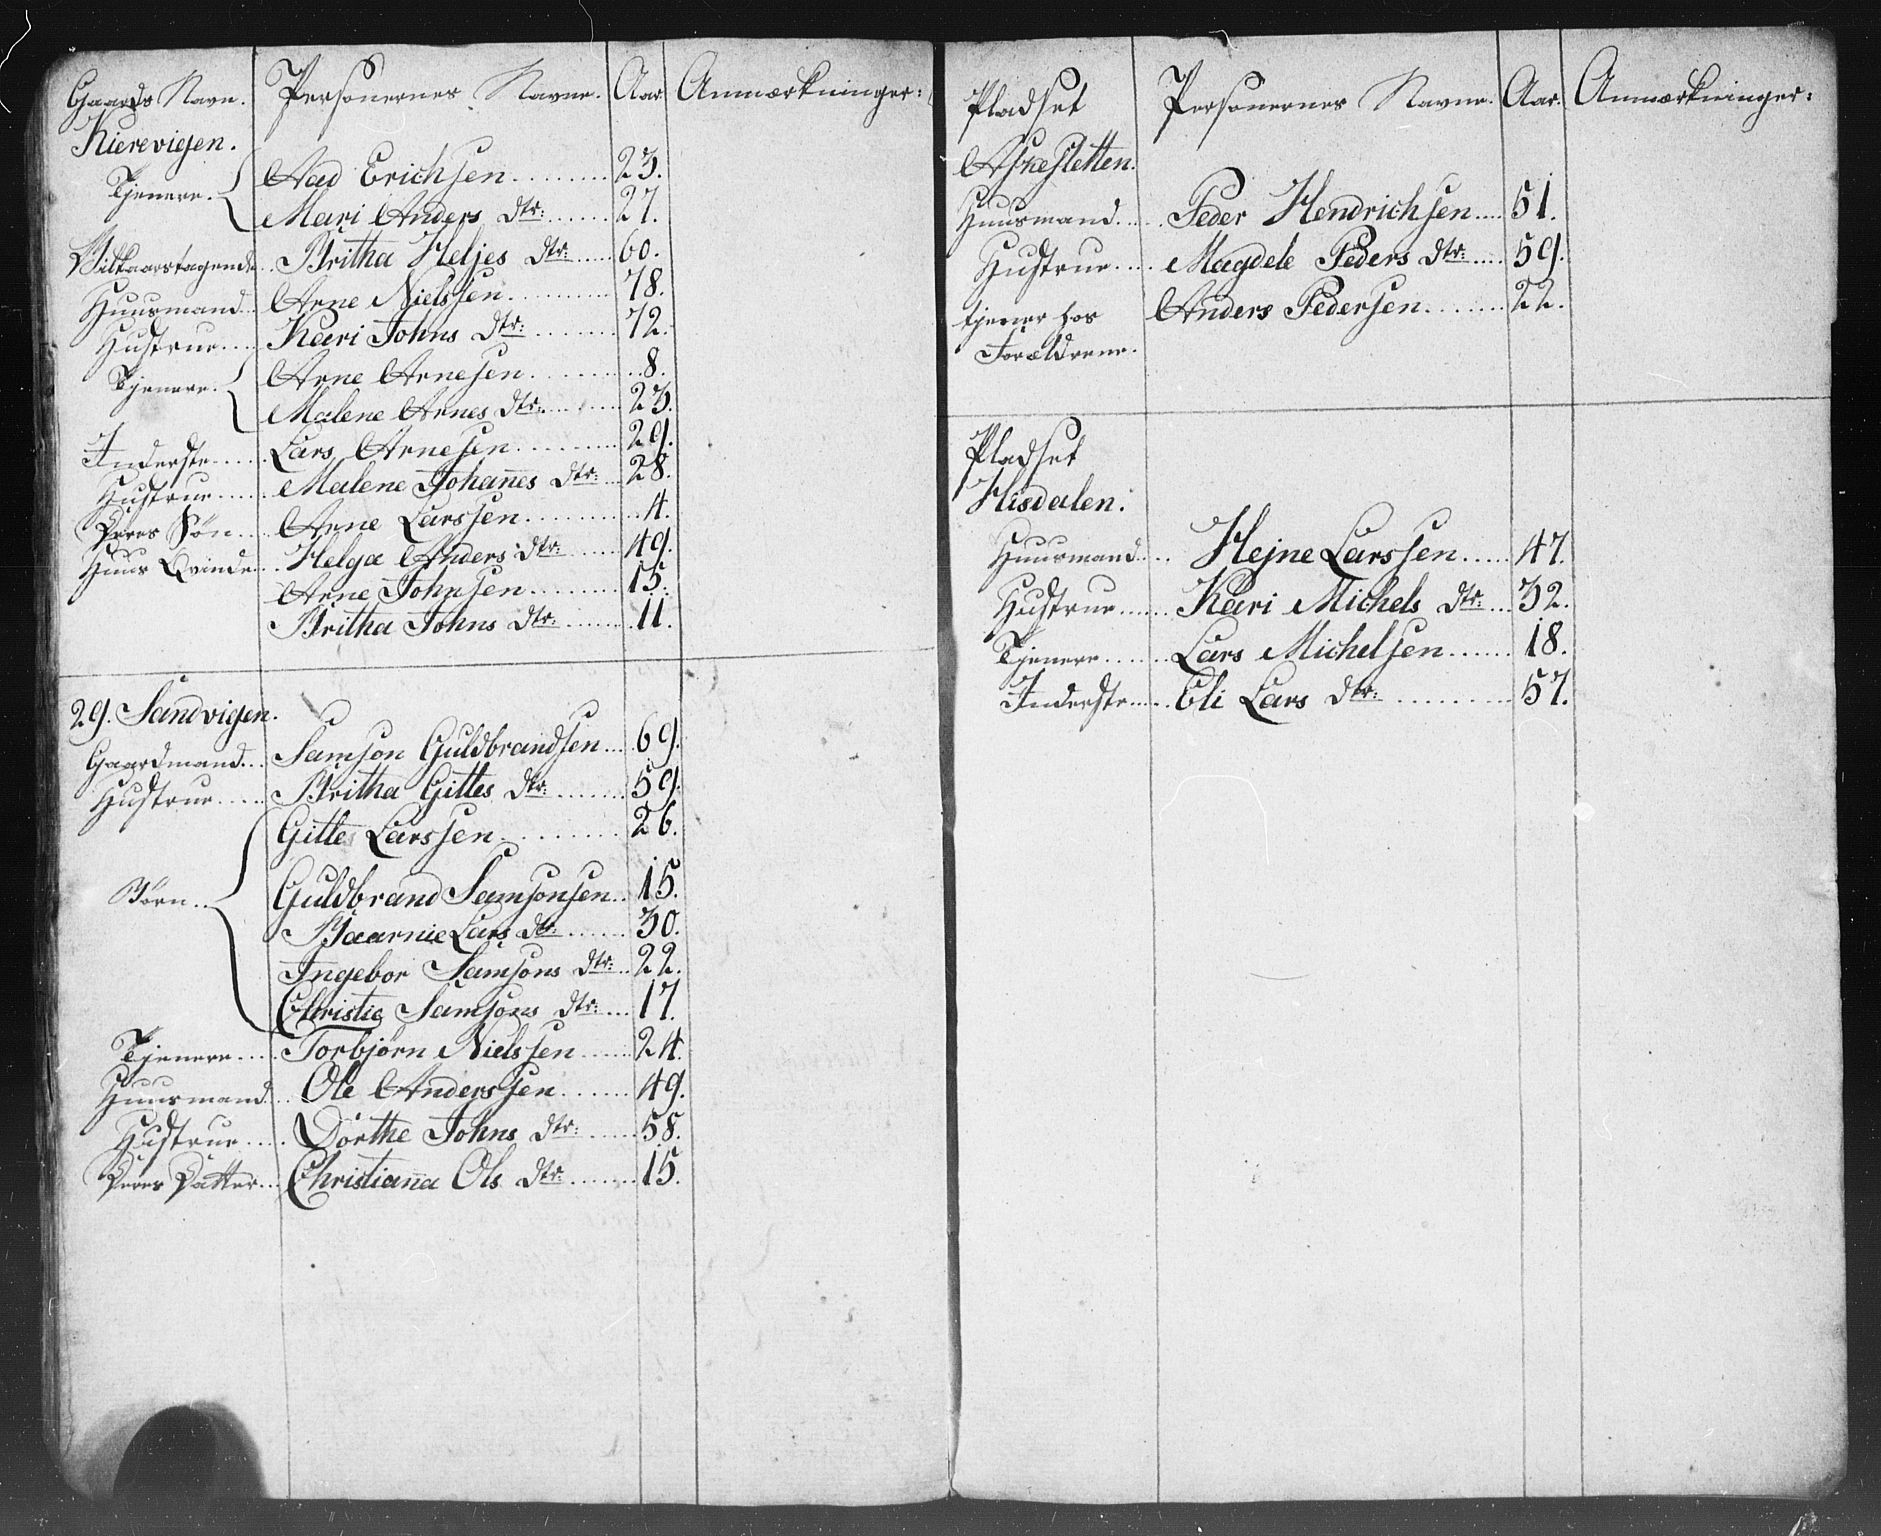 Gaards Navn. Personernes Navne. Aar. Anmærkninger:
Kierevigen.
Tjenere. Aad Erichsen 23.
Mari Anders Dtr: 27.
Vilkaarstagende Britha Heljes Dtr: 60.
Huusmand Arne Nielssen 78.
Hustrue Kari Johns Dtr: 72.
Tjenere. Arne Arnesen 8.
Malene Arnes Dtr: 23.
Inderste Lars Arnesen 29.
Hustrue Malene Johannes Dtr: 28.
Deres Søn Arne Larssen 4.
Huus Qvinde Helga Anders Dtr: 49.
Arne Johnsen 15.
Britha Johns Dtr: 11.
29. Sandvigen.
Gaardmand Samson Guldbrandsen 69.
Hustrue Britha Gittes Dtr: 59.
Gitte Larssen 26.
Børn Guldbrand Samsonsen 15.
Baarnie Lars Dtr: 30.
Ingebor Samsons Dtr: 22.
Christie Samsons Dtr: 17.
Tjenere Torbjørn Nielssen 24.
Huusmand Ole Anderssen 49.
Hustrue Dorthe Johns Dtr: 58.
Deres Datter Christianna Ols Dtr: 15.
Pladset Personernes Navne. Aar. Anmærkninger:
Huusmand Peder Hendrichsen 51.
Hustrue Magdele Peders Dtr: 59.
tjener hos Anders Pedersen 22.
Forældrene.
Pladset
Hisdalen:
Huusmand Hejne Larssen 47.
Hustrue Kari Michels Dtr: 32.
Tjenere Lars Michelsen 18.
Inderste Eli Lars Dtr: 57.